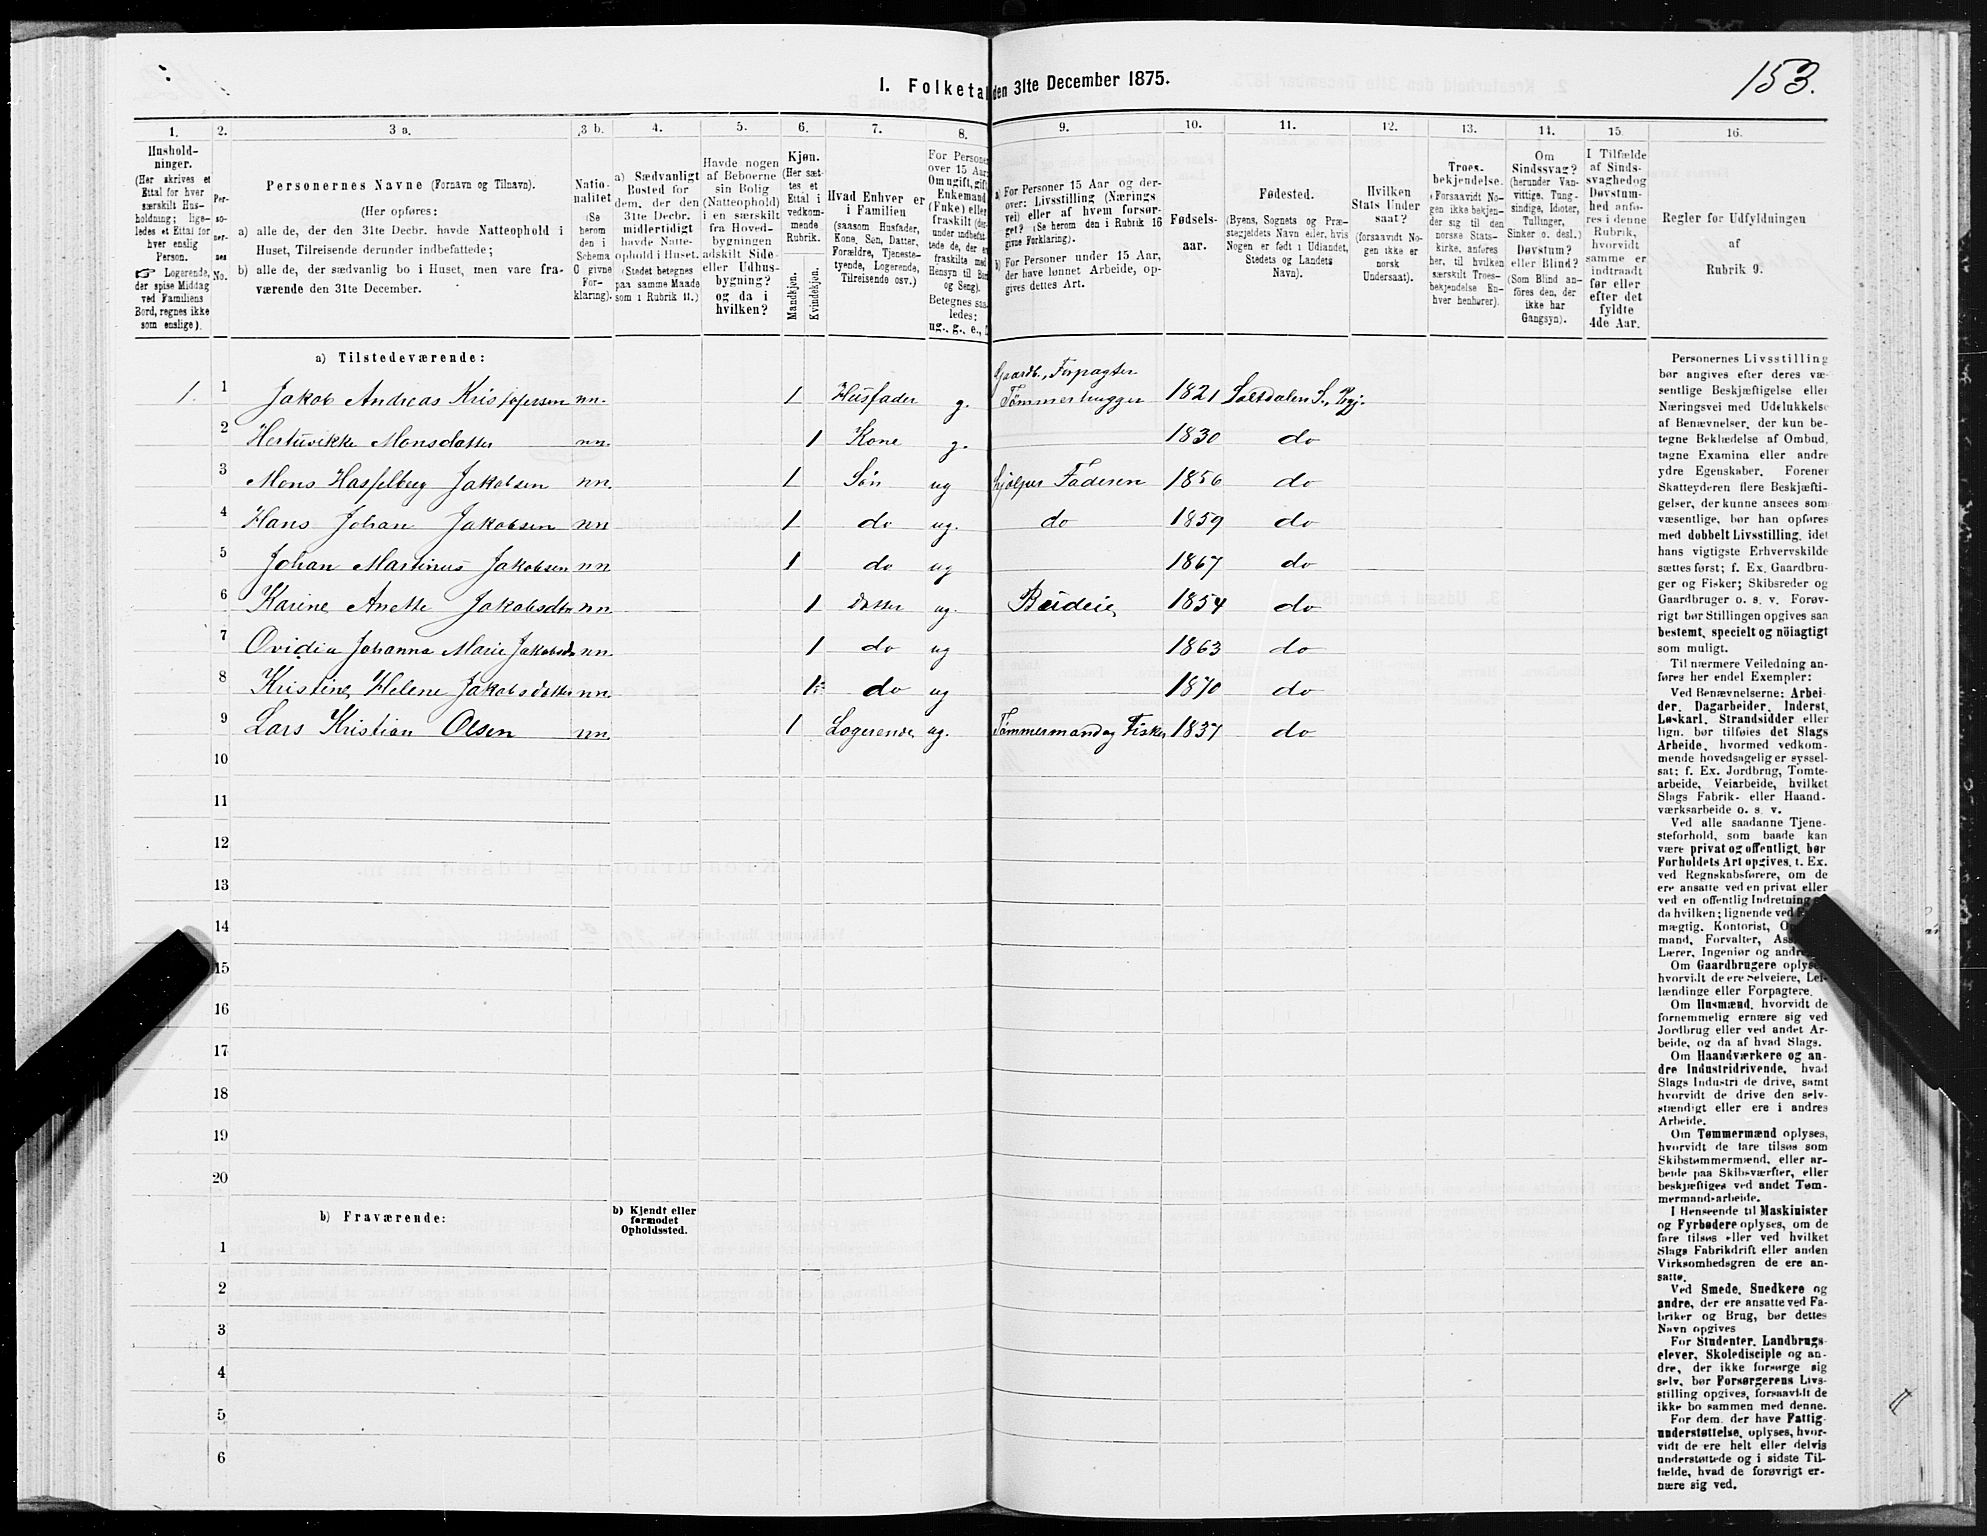 153.
1. Folketal den 31te December 1875.
1. 2. 3 a. 3 b. 4. 5. 6. 7. 8. 9. 10. 11. 12. 13. 14. 15. 16.
Hushold-
ninger.
(Her skrives et
Ettal for hver
særskilt Hus-
holdning; lige-
ledes et Ettal for
hver enslig
Person.
☞ Logerende,
der spise Middag
ved Familiens
Bord, regnes ikke
som enslige).
Per-
so-
ner-
nes
No.
Personernes Navne (Fornavn og Tilnavn).
(Her opføres:
a) alle de, der den 31te Decbr. havde Natteophold i
Huset, Tilreisende derunder indbefattede;
b) alle de, der sædvanlig bo i Huset, men vare fra-
værende den 31te December.
Natio-
nalitet
(Se
herom
den i
Schema
O givne
For-
klaring).
a) Sædvanligt
Bosted for
dem, der den
31te Decbr.
midlertidigt
havde Natte-
ophold i Huset.
(Stedet betegnes
paa samme Maade
som i Rubrik 11.)
Havde nogen
af Beboerne
sin Bolig
(Natteophold)
i en særskilt
fra Hoved-
bygningen
adskilt Side-
eller Udhus-
bygning?
og da i
hvilken?
Kjøn.
(Her sæt-
tes et
Ettal i
vedkom-
mende
Rubrik.
Mandkjøn.
Kvindekjøn.
Hvad Enhver er
i Familien
(saasom Husfader,
Kone, Søn, Datter,
Forældre, Tjeneste-
tyende, Logerende,
Tilreisende osv.)
For Personer
over 15 Aar:
Om ugift, gift,
Enkemand
(Enke) eller
fraskilt
Betegnes saa-
ledes:
ug., g., e.,
a) For Personer 15 Aar og der-
over: Livsstilling (Nærings
vei) eller af hvem forsør-
get? (Se herom den i Rubrik 16
givne Forklaring).
b) For Personer under 15 Aar,
der have lønnet Arbeide, op-
gives dettes Art.
Fødsels-
aar.
Fødested.
(Byens, Sognets og Præ-
stegjeldets Navn eller, hvis
Nogen er født i Udlandet,
Stedets og Landets
Navn).
Hvilken
Stats Under
saat?
(forsaavidt No-
gen ikke er
norsk
Undersaat).
Troes-
bekjendelse.
(Forsaavidt No-
gen ikke bekjen-
der sig til den
norske Stats-
kirke, anføres
her, til hvilken
særskilt Troes-
bekjendelse En-
hver henhører).
Om
Sindssvag?
(herunder Van-
vittige, Tung-
sindige, Idioter,
Tullinger,
Sinker o. desl.)
Døvstum?
eller Blind?
(Som Blind an-
føres den, der
ikke har
Gangsyn).
I Tilfælde
af Sinds-
svaghed og
Døvstum-
hed anfø-
res i denne
Rubrik,
hvorvidt
samme er
indtraadt
før eller
efter det
fyldte
4de Aar.
Regler for Udfyldningen
af
Rubrik 9.
a) Tilstedeværende:
Gaardb., Forpagter
1. 1 Jakob Andreas Kristofersen nn. 1 Husfader g. Tømmerhugger 1821 Saltdalen S., Pgj.
2 Hertuvikke Monsdatter nn. 1 Kone g. 1830 do
3 Mons Hasselberg Jakobsen nn. 1 Søn ug hjelper Faderen 1856 do
4 Hans Johan Jakobsen nn 1 do ug. do 1859 do
5 Johan Martinus Jakobsen nn 1 do ug 1867 do
6 Karine Anette Jakobsdtr nn 1 Datter ug. Budeie 1854 do
7 Ovidia Johanna Marie Jakobsd nn. 1 do ug 1863 do
8 Kristine Helene Jakobsdatter nn. 1 do ug 1870 do
9 Lars Kristian Olsen nn. 1 Logerende ug. Tømmermand og Fisker 1837 do
10
11
12
13
14
15
16
17
18
19
20
b) Fraværende:
b) Kjendt eller
formodet
Opholdssted.
1
2
3
4
5
6
Personernes Livsstilling
bør angives efter deres væ-
sentlige Beskjæftigelse eller
Næringsvei med Udelukkelse
af Benævnelser, der kun be-
tegne Beklædelse af Ombud,
tagne Examina eller andre
ydre Egenskaber. Forener
Skatteyderen flere Beskjæfti-
gelser, der kunne ansees som
væsentlige, bør han opføres
med dobbelt Livsstilling, idet
hans vigtigste Erhvervskilde
sættes først; f. Ex. Gaardbru-
ger og Fisker; Skibsreder og
Gaardbruger o. s. v. Forøv-
rigt bør Stillingen opgives saa
bestemt, specielt og nöiagtigt
som muligt.
Til nærmere Veiledning an-
føres her endel Exempler:
Ved Benævnelserne: Arbei-
der, Dagarbeider, Inderst,
Løskarl, Strandsidder eller
lign. bør tilføies det Slags
Arbeide, hvormed vedkom-
mende hovedsagelig er syssel-
sat; f. Ex. Jordbrug, Tomte-
arbeide, Veiarbeide, hvilket
Slags Fabrik- eller Haand-
værksarbeide o. s. v.
Ved alle saadanne Tjene-
steforhold, som baade kan
være privat og offentligt, bør
Forholdets Art opgives, t. Ex.
ved Regnskabsførere, om de
ere ansatte ved en privat eller
ved en offentlig Indretning
da hvilken; lignende ved
mægtig, Kontorist,
mand, Forvalter,
Lærer, Ingeniør og andre
Om Gaardbrugere oplyses,
hvorvidt de ere Selveiere, Lei-
lændinge eller Forpagtere.
Om Husmænd, hvorvidt de
fornemmelig ernære sig ved
Jordbrug eller ved andet Ar-
beide, og da af hvad Slags.
Om Haandværkere og an-
dre Industridrivende, hvad
Slags Industri de drive, samt
hvorvidt de drive den selv-
stændigt eller ere i andres
Arbeide.
Om Tømmermænd oplyses,
hvorvidt de fare tilsøs som
Skibstømmermænd, eller ar-
beide paa Skibsværfter, eller
beskjæftiges ved andet Tøm-
mermandsarbeide.
I Henseende til Maskinister
og Fyrbødere oplyses, om de
fare tilsøs eller ved hvilket
Slags Fabrikdrift eller anden
Virksomhedsgren de ere an-
satte.
Ved Smede, Snedkere og
andre, der ere ansatte ved Fa-
briker og Brug, bør dettes
Navn opgives
For Studenter, Landbrugs-
elever, Skoledisciple og an-
dre, der ikke forsørge sig
selv, bør Forsørgerens Livs-
stilling opgives, forsaavidt de
ikke bo sammen med denne.
For dem, der have Fattig-
understøttelse, oplyses, hvor-
vidt de ere helt eller delvis
understøttede og i sidste Til-
fælde, hvad de forøvrigt er-
nære sig ved.